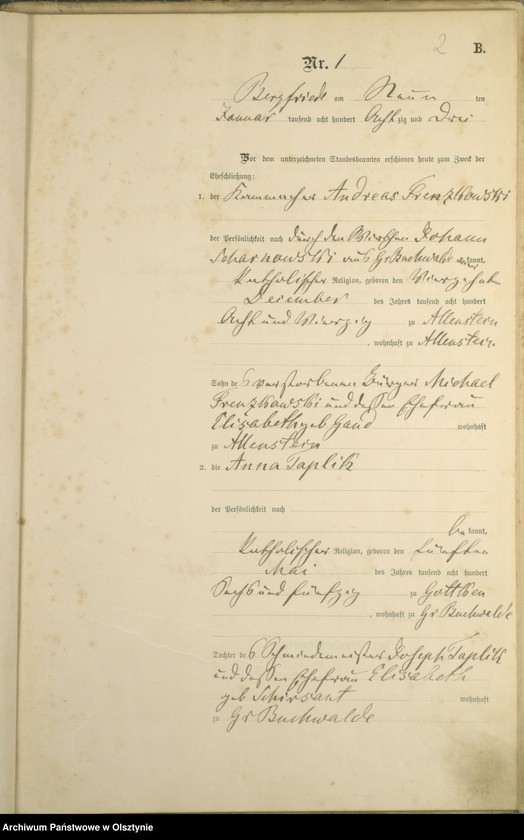 2 B.
Nr. 1
Bergfriede am Neun ten
Januar tausend acht hundert Acht zig und Drei
Vor dem unterzeichneten Standesbeamten erschienen heute zum Zweck der
Eheschließung:
1. der Kammmacher Andreas Frenzkowski
der Persönlichkeit nach durch den Wirthen Johann
Scharnowski aus Gr Buchwalde kannt,
katholischer Religion, geboren den Vierzehnten
December des Jahres tausend acht hundert
Acht und Vierzig zu Allenstein
, wohnhaft zu Allenstein
Sohn des verstorbenen Bürger Michael
Frenzkowski und dessen Ehefrau
Elisabeth geb Gand wohnhaft
zu Allenstein
2. die Anna Taplik
der Persönlichkeit nach
be kannt,
katholischer Religion, geboren den fünften
Mai des Jahres tausend acht hundert
Sechs und fünfzig zu Gottken
, wohnhaft zu Gr Buchwalde
Tochter des Schmiedemeister Joseph Taplik
und dessen Ehefrau Elisabeth
geb wohnhaft
zu Gr Buchwalde
Archiwum Państwowe w Olsztynie